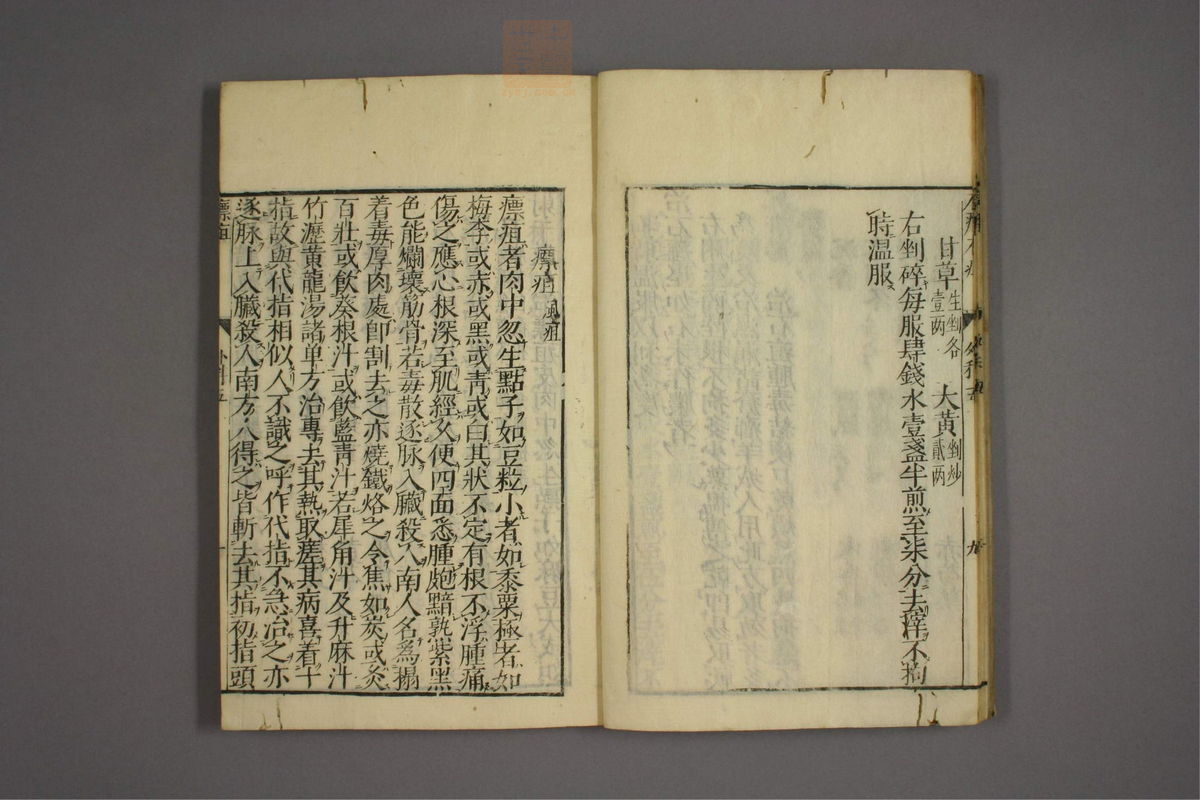 甘草生剉各壹两 大黃剉炒貳两
右剉碎每服肆錢水壹盞半煎至柒分去滓不拘
時温服
瘭疽 風疽
瘭疽者肉中忽生點子如豆粒小者如黍粟極者如
梅李或赤或黑或靑或白其狀不定有根不浮腫痛
傷之應心根深至肌經久便四面悉腫皰黯熟紫黑
色能爛壞筋骨若毒散逐脉入臟殺人南人名爲搨
着毒厚肉處卽割去之亦燒鐵烙之令焦如炭或灸
百壯或飲葵根汁或飲藍青汁若犀角汁及升麻汁
竹瀝黃龍湯諸单方治專去其熱取瘥其病喜着十
指故與代指相似人不識之呼作代指不急治之亦
逐脉上入臟殺人南方人得之皆斬去其指初指頭
瘭疽